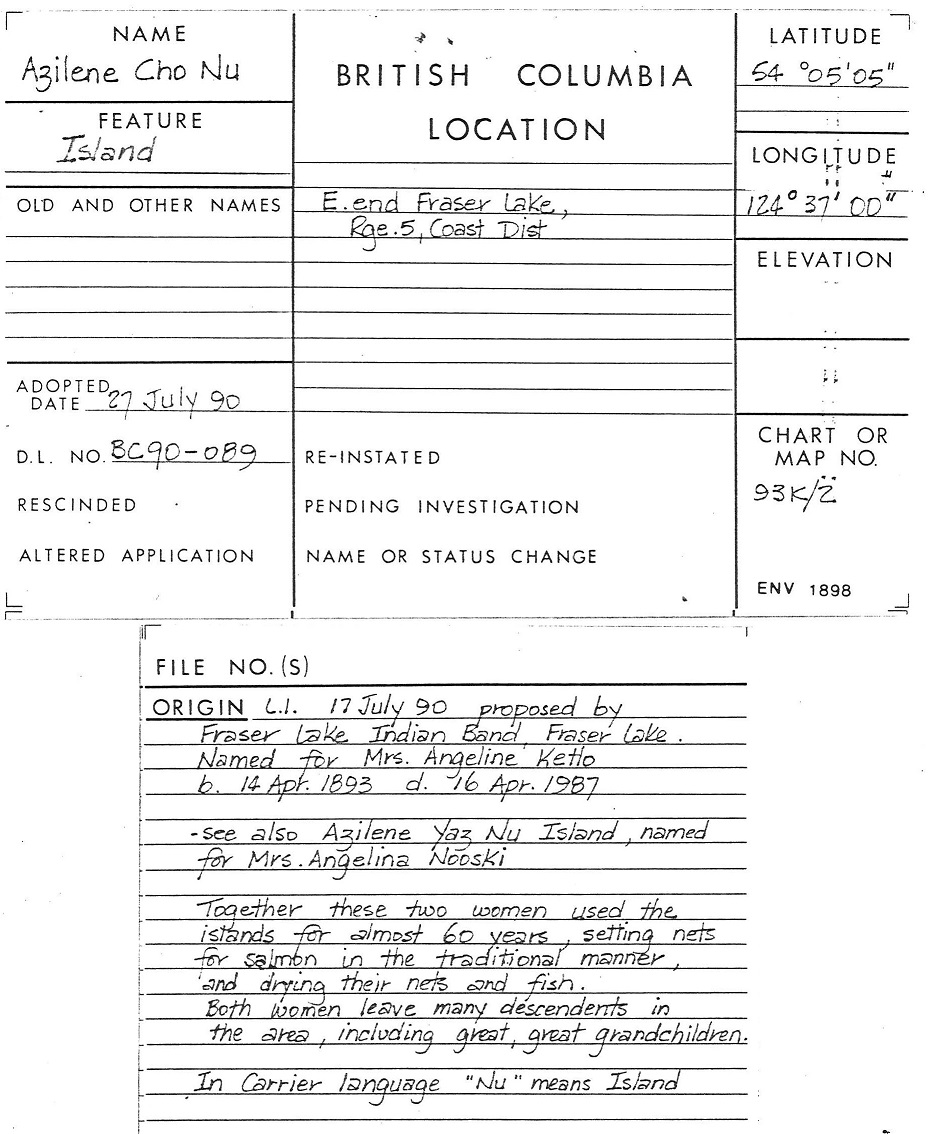 NAME
Azilene Cho Nu
FEATURE
Island
OLD AND OTHER NAMES
ADOPTED
DATE 27 July 90
D.L. NO. BC90-089
RESCINDED
ALTERED APPLICATION
BRITISH COLUMBIA
LOCATION
E. end Fraser Lake,
Rge. 5, Coast Dist
RE-INSTATED
PENDING INVESTIGATION
NAME OR STATUS CHANGE
LATITUDE
54 °05'05"
LONGITUDE
124° 37' 00"
ELEVATION
CHART OR
MAP NO.
93K/2
ENV 1898
FILE NO. (S)
ORIGIN L.I. 17 July 90 proposed by
Fraser Lake Indian Band, Fraser Lake.
Named for Mrs. Angeline Ketlo
b. 14 Apr. 1893 d. 16 Apr. 1987
-see also Azilene Yaz Nu Island, named
for Mrs. Angelina Nooski
Together these two women used the
islands for almost 60 years, setting nets
for salmon in the traditional manner,
and drying their nets and fish.
Both women leave many descendents in
the area, including great, great grandchildren.
In Carrier language "Nu" means Island